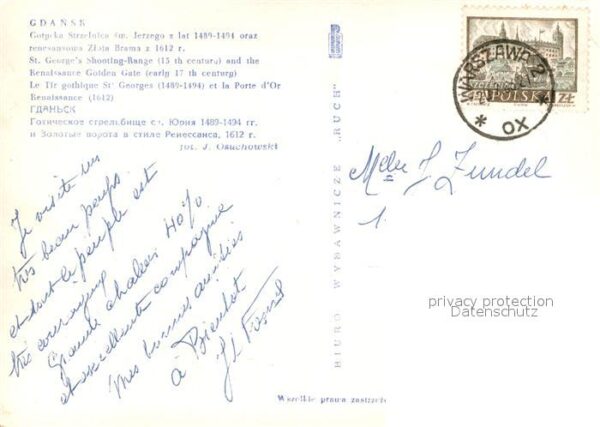 GDAŃSK
Gotycka Strzelnica św. Jerzego z lat 1489-1494 oraz
renesansowa Złota Brama z 1612 r.
St. George's Shooting-Range (15 th century) and the
Renaissance Golden Gate (early 17 th century)
Le Tir gothique St Georges (1489-1494) et la Porte d'Or
Renaissance (1612)
ГДАНЬСК
Готическое стрельбище св. Юрия 1489-1494 гг.
и Золотые ворота в стиле Ренессанса, 1612 г.
fot. J. Osuchowski
Je visite un
très beau pays
et dont le peuple est
très courageux
Grande chaleur 40%
et excellente compagnie
Mes bonnes amitiés
à Bientôt
BIURO WYDAWNICZE „RUCH"
WARSZAWA 2
POLSKA
ZŁ
OX
Mde J Zundel
1
privacy protection
Datenschutz
Wszelkie prawa zastrzeż